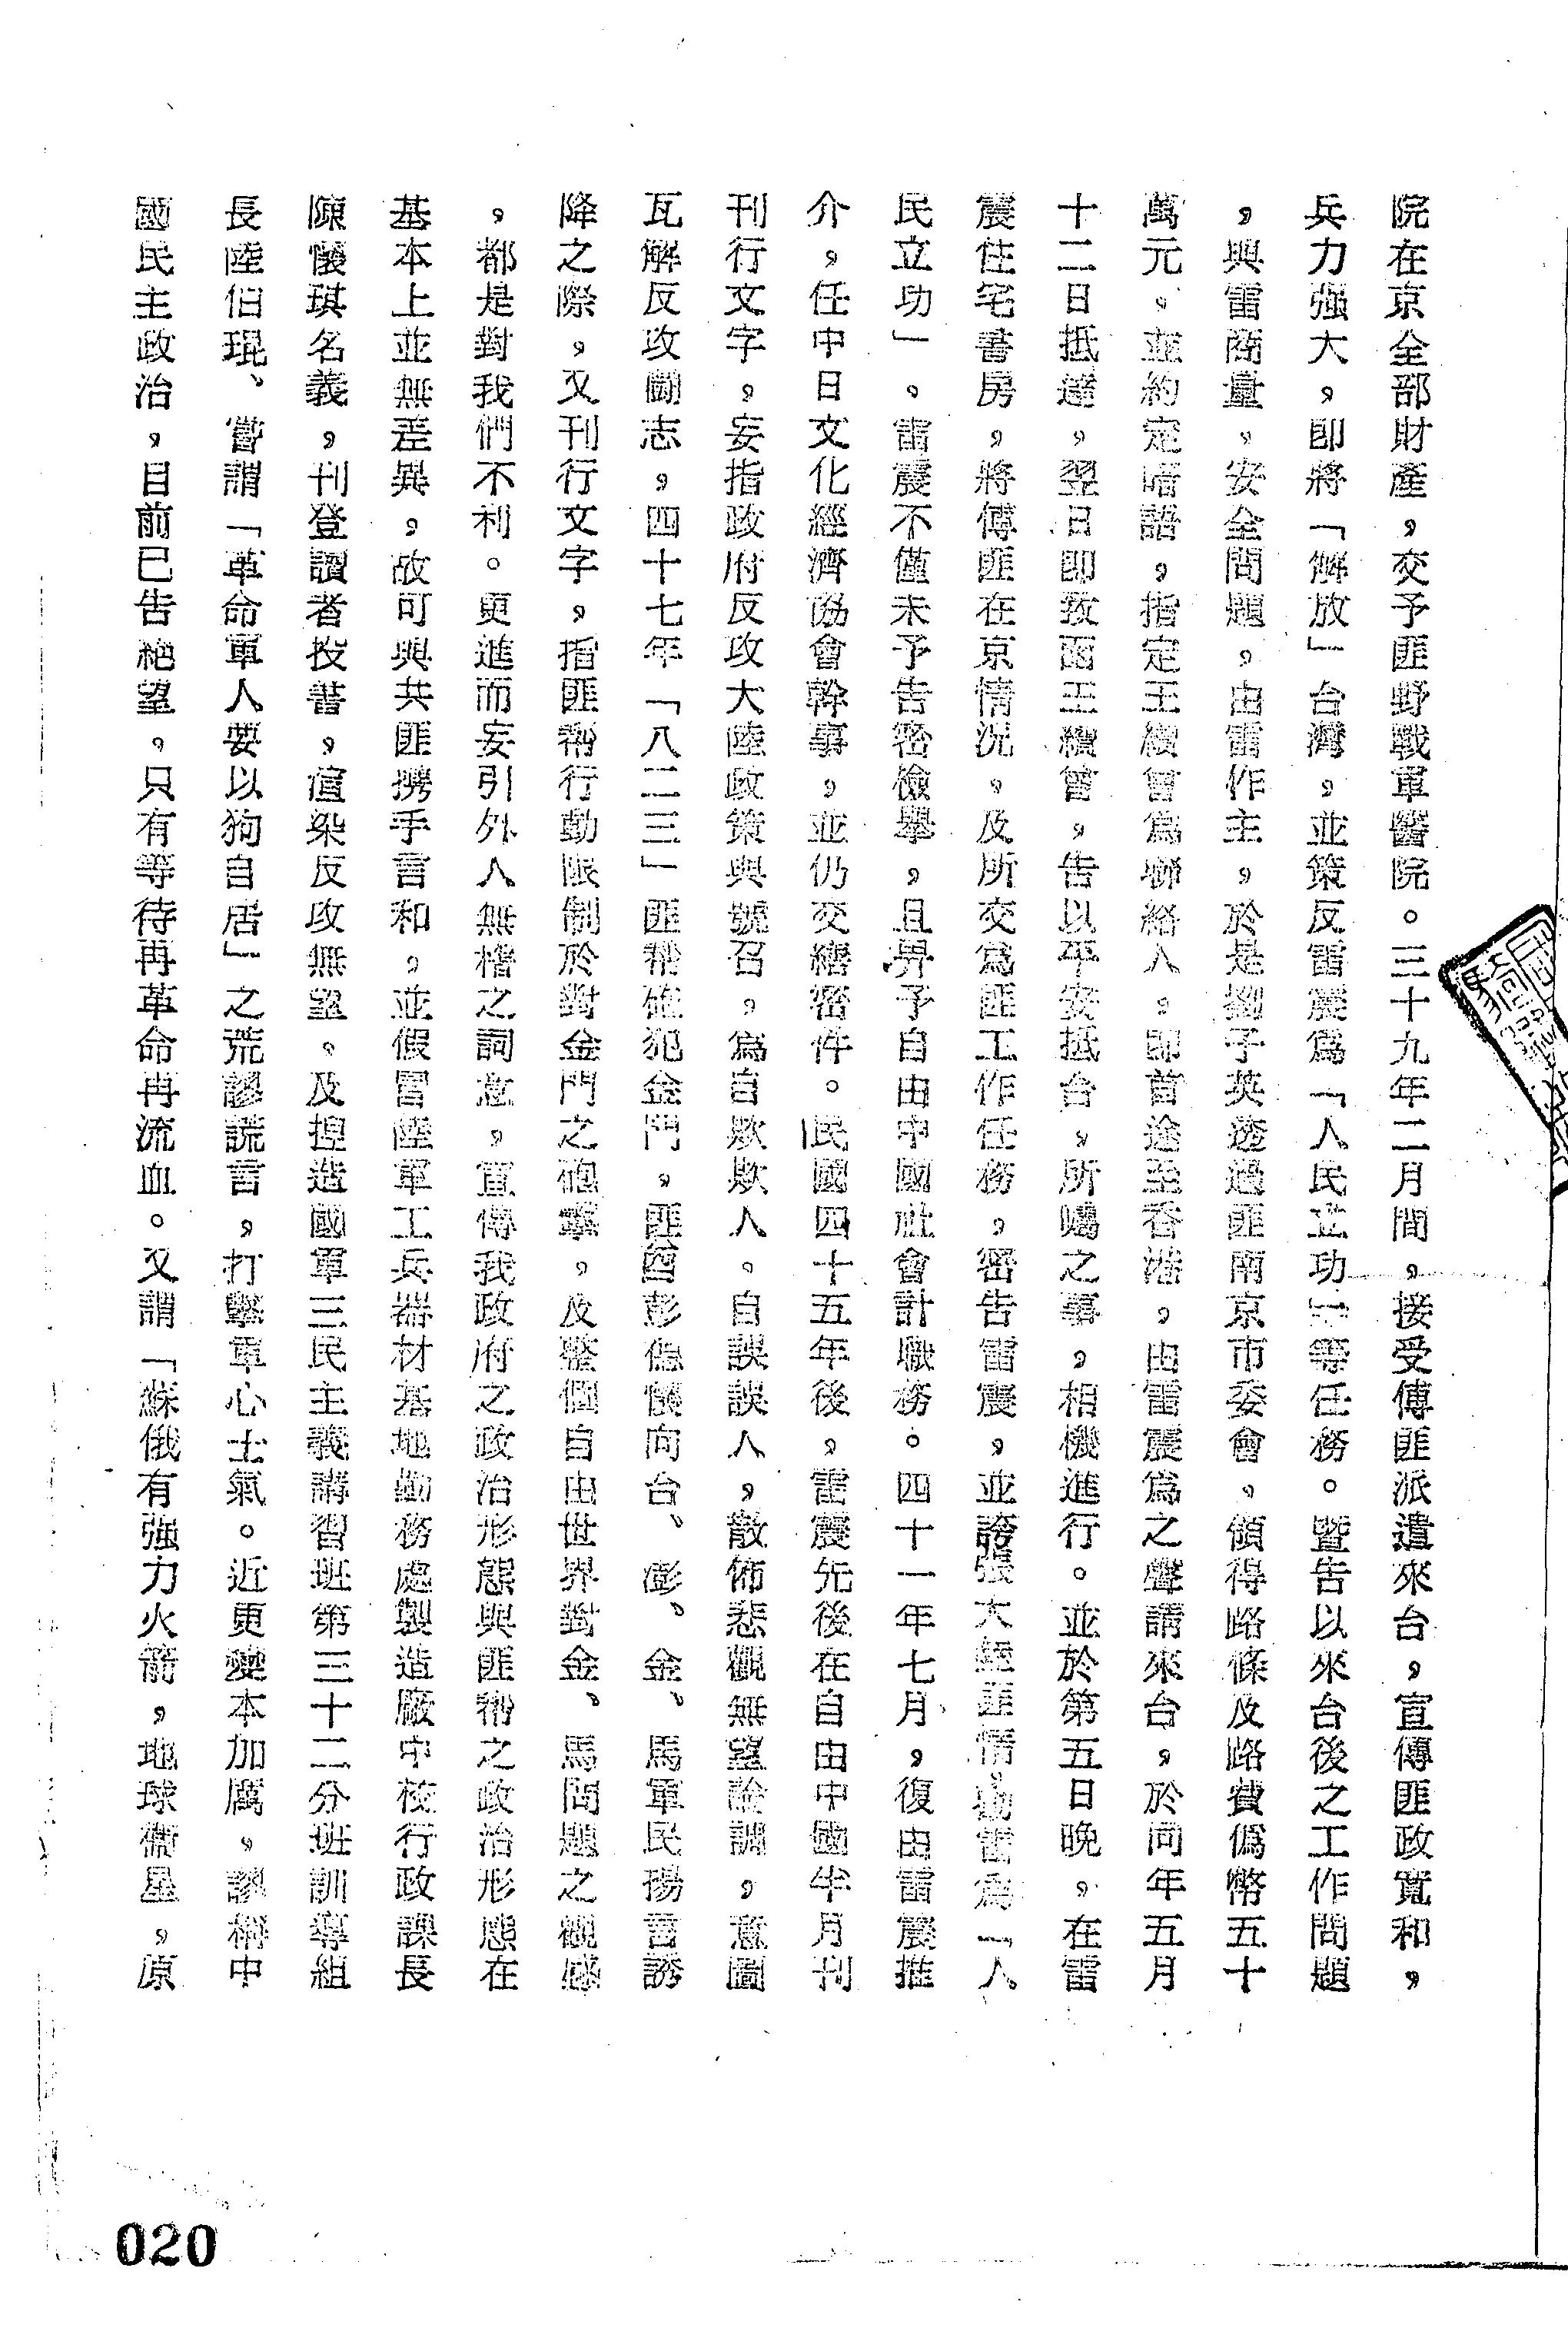 院在京全部財產，交予匪野戰軍醫院。三十九年二月間，接受傅匪派遣來台，宣傳匪政寬和，
兵力强大，即將「解放」台灣，並策反雷震爲「人民立功」等任務。曁告以來台後之工作問題
，與雷商量，安全問題，由雷作主，於是劉子英透過匪南京市委會，領得路條及路費僞幣五十
萬元，並約定暗語，指定王績曾爲聯絡人，即首途至香港，由雷震爲之聲請來台，於同年五月
十二日抵達，翌日即致函王績曾，告以平安抵台，所囑之事，相機進行。並於第五日晚，在雷
震住宅書房，將傅匪在京情況，及所交爲匪工作任務，密告雷震，並誇張大陸匪情，勸雷爲「人
民立功」。雷震不僅未予告密檢舉，且畀予自由中國社會計職務。四十一年七月，復由雷震推
介，任中日文化經濟協會幹事，並仍交繕密件。民國四十五年後，雷震先後在自由中國半月刊
刊行文字，妄指政府反攻大陸政策與號召，爲自欺欺人。自誤誤人，散佈悲觀無望論調，意圖
瓦解反攻鬪志，四十七年「八二三」匪幫砲犯金門，匪酋彭德懷向台、澎、金、馬軍民揚言誘
降之際，又刊行文字，指匪幫行動限制於對金門之砲擊，及整個自由世界對金、馬問題之觀感
，都是對我們不利。更進而妄引外人無稽之詞意，宣傳我政府之政治形態與匪幫之政治形態在
基本上並無差異，故可與共匪携手言和，並假冒陸軍工兵器材基地勤務處製造廠中校行政課長
陳懷琪名義，刊登讀者投書，渲染反攻無望，及揑造國軍三民主義講習班第三十二分班訓導組
長陸伯琨、嘗謂「革命軍人要以狗自居」之荒謬謊言，打擊軍心士氣。近更變本加厲，謬稱中
國民主政治，目前已告絶望，只有等待再革命再流血。又謂「蘇俄有强力火箭，地球衞星，原
020